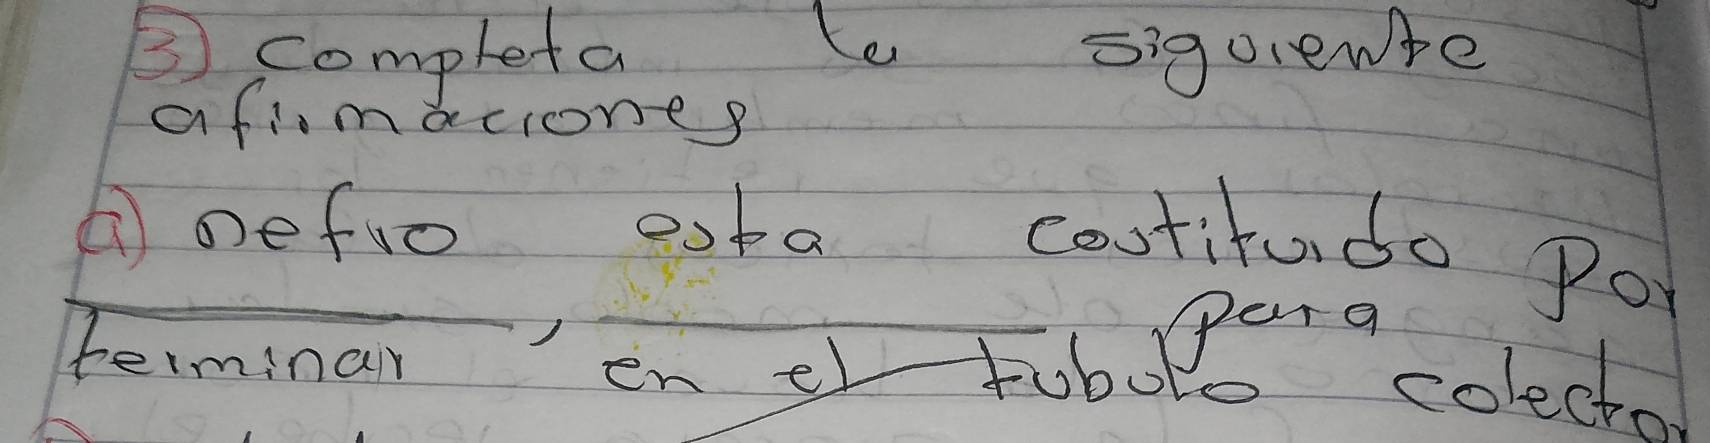 3) completa la siguiente
afirmaciones
a) nefro esta costituido por
________, ________ para
terminar en el tubulo colector